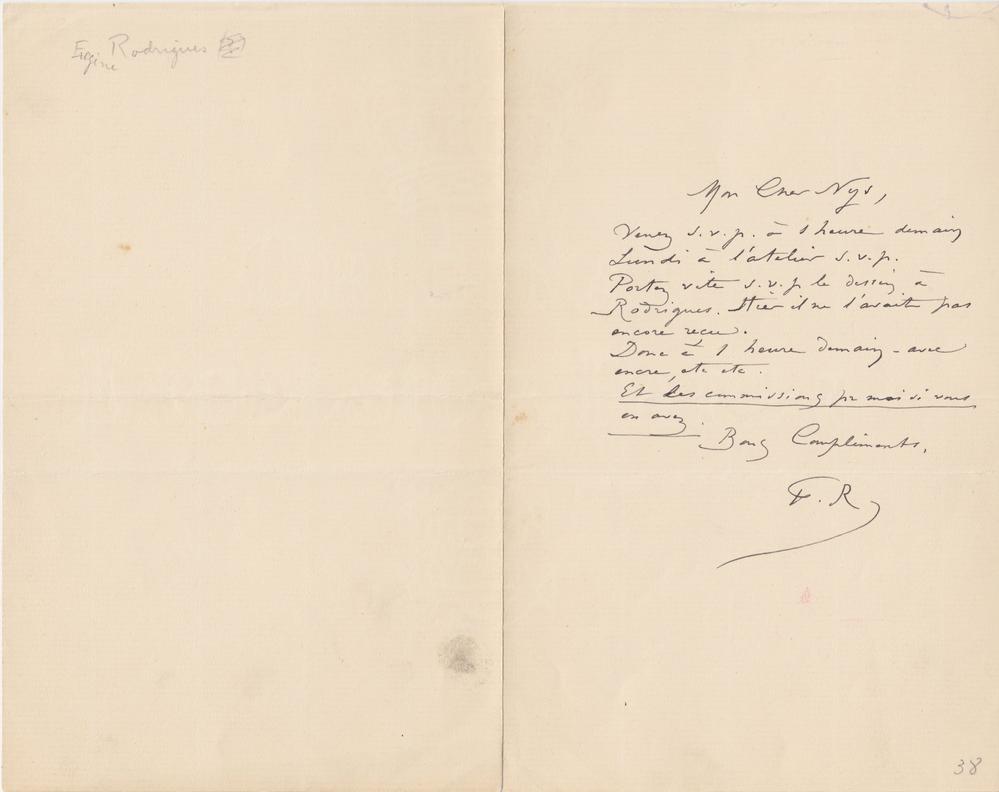 Eugène Rodrigues
Mon Cher Nys,
Venez s.v.p. à 1 heure demain
Lundi à l'atelier s.v.p.
Portez vite s.v.p le dessin à
Rodrigues. Hier il ne l'avait pas
encore reçu.
Donc à 1 heure demain - avec
encre, etc etc.
Et les commissions pr moi si vous
en avez.
Bons Compliments,
F. R
38